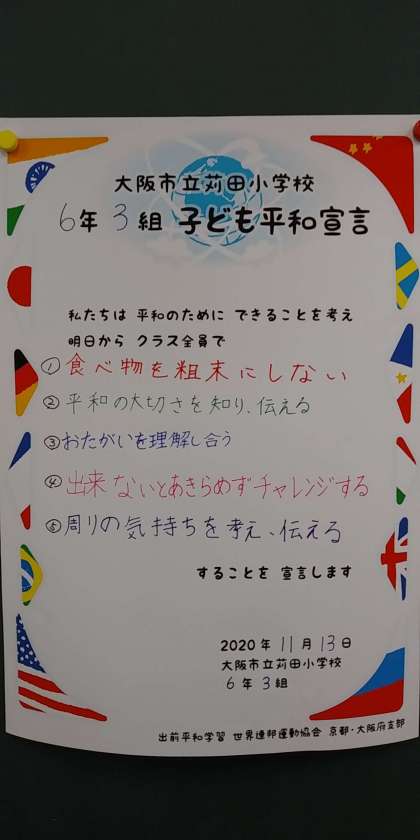 大阪市立苅田小学校
6年 3組 子ども平和宣言
私たちは 平和のために できることを考え
明日から クラス全員で
①食べ物を粗末にしない
②平和の大切さを知り、伝える
③おたがいを理解し合う
④出来ないとあきらめずチャレンジする
⑤周りの気持ちを考え、伝える
することを 宣言します
2020年 11月 13日
大阪市立苅田小学校
6年 3組
出前平和学習 世界連邦運動協会 京都・大阪府支部